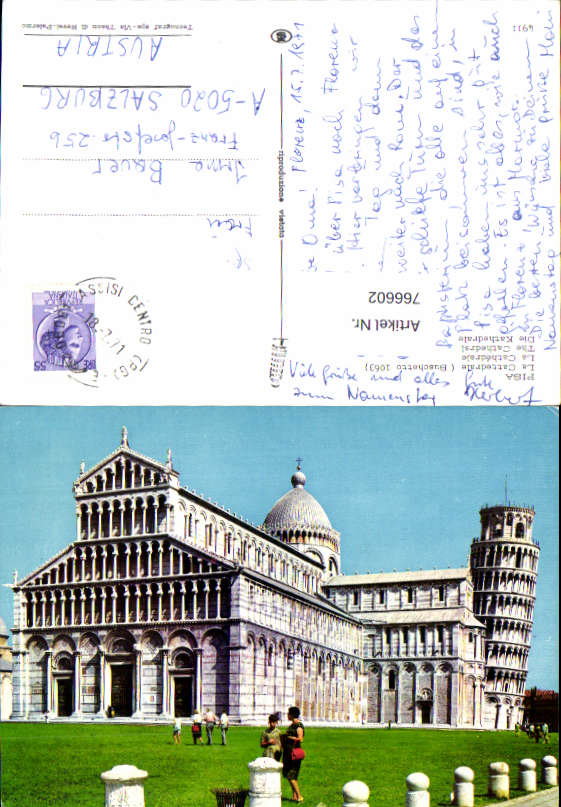 4911
PISA
La Cattedrale ( Buschetto 1063)
La Cathédrale
The Cathedral
Die Kathedrale
Florenz, 15.7.1971
Oma!
über Pisa nach Florenz
Hier verbringen wir
Tag und dann
weiter nach Rom. Der
schiefe Turm und das
Baptisterium die alle auf einem
Platz beisammen sind, in
Pisa haben uns sehr gut
gefallen. Es ist aber wie auch
in Florenz
Die besten Wünsche zu Deinem
Namenstag und viele Grüße
Viele Grüße und alles Gute
zum Namenstag Herbert
riproduzione vietata
Frau
Irma Bauer
Franz-Josefstr. 25b
A-5020 SALZBURG
AUSTRIA
Tecnograf spa - Via Thaon di Revel - Palermo
ASSISI CENTRO (PG)
18.7.71
Artikel Nr.
766602